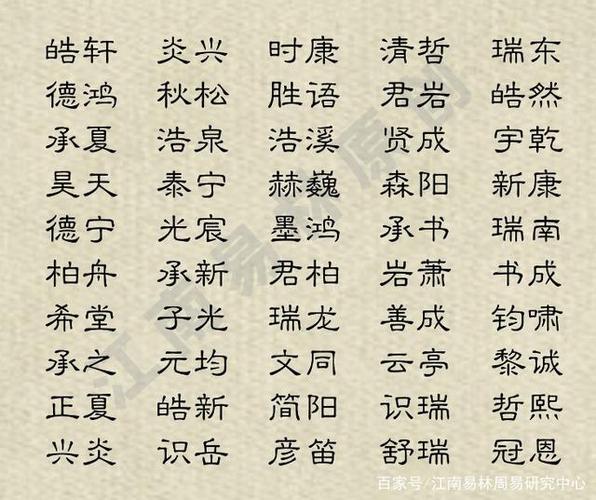 皓轩 炎兴 时康 清哲 瑞东
德鸿 秋松 胜语 君岩 皓然
承夏 浩泉 浩溪 贤成 宇乾
昊天 泰宁 赫巍 森阳 新康
德宁 光宸 墨鸿 承书 瑞南
柏舟 承新 君柏 岩萧 书成
希堂 子光 瑞龙 善成 钧啸
承之 元均 文同 云亭 黎诚
正夏 皓新 简阳 识瑞 哲熙
兴炎 识岳 彦笛 舒瑞 冠恩
江南易林原创
百家号/江南易林周易研究中心